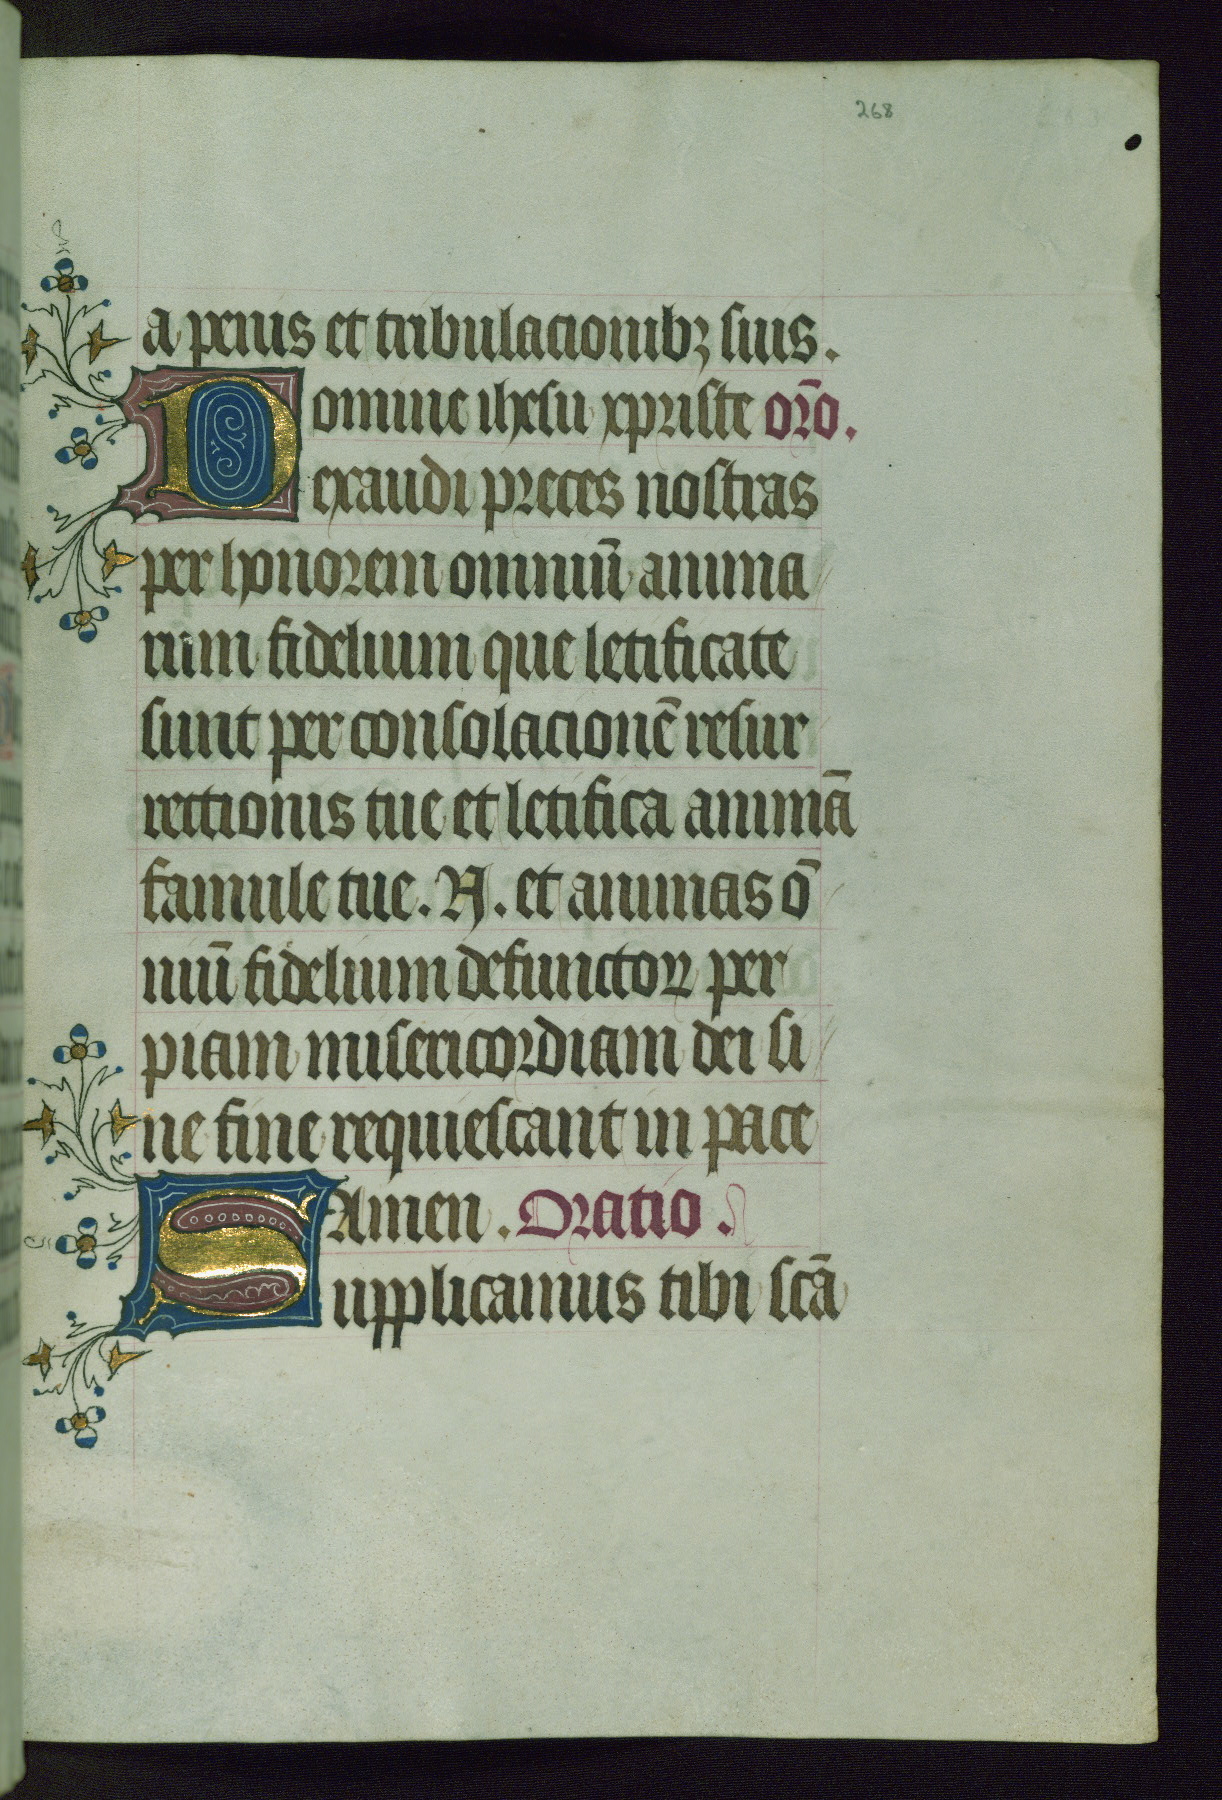 268
a penis et tribulacionibꝫ suis.
Domine ihesu xpriste or̄o.
exaudi preces nostras
per honorem omniū anima
rum fidelium que letificate
sunt per consolacionē resur
rectionis tue et letifica animā
famule tue. N. et animas ō
niū fidelium defunctoꝝ per
piam misericordiam dei si
ne fine requiescant in pace
Amen. Oratio.
Supplicamus tibi scā